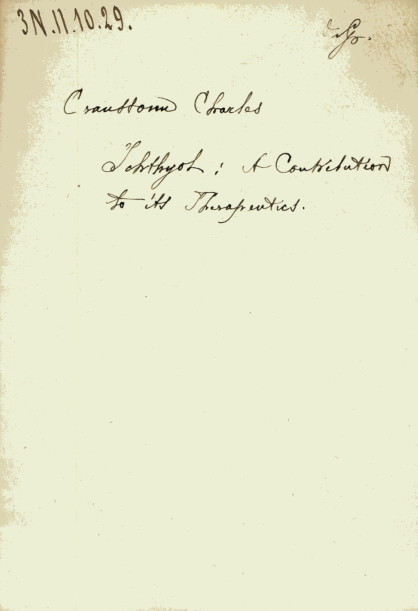 3N.11.10.29.
Cranstonn Charles
Ichthyol : A Contribution
to its Therapeutics.